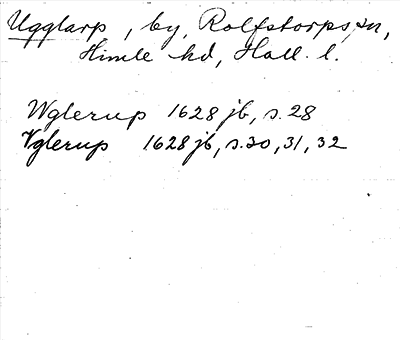 Ugglarp, by, Rolfstorps sn,
Himle hd, Hall. l.
Wglerup 1628 jb, s. 28
Vglerup 1628 jb, s. 30, 31, 32